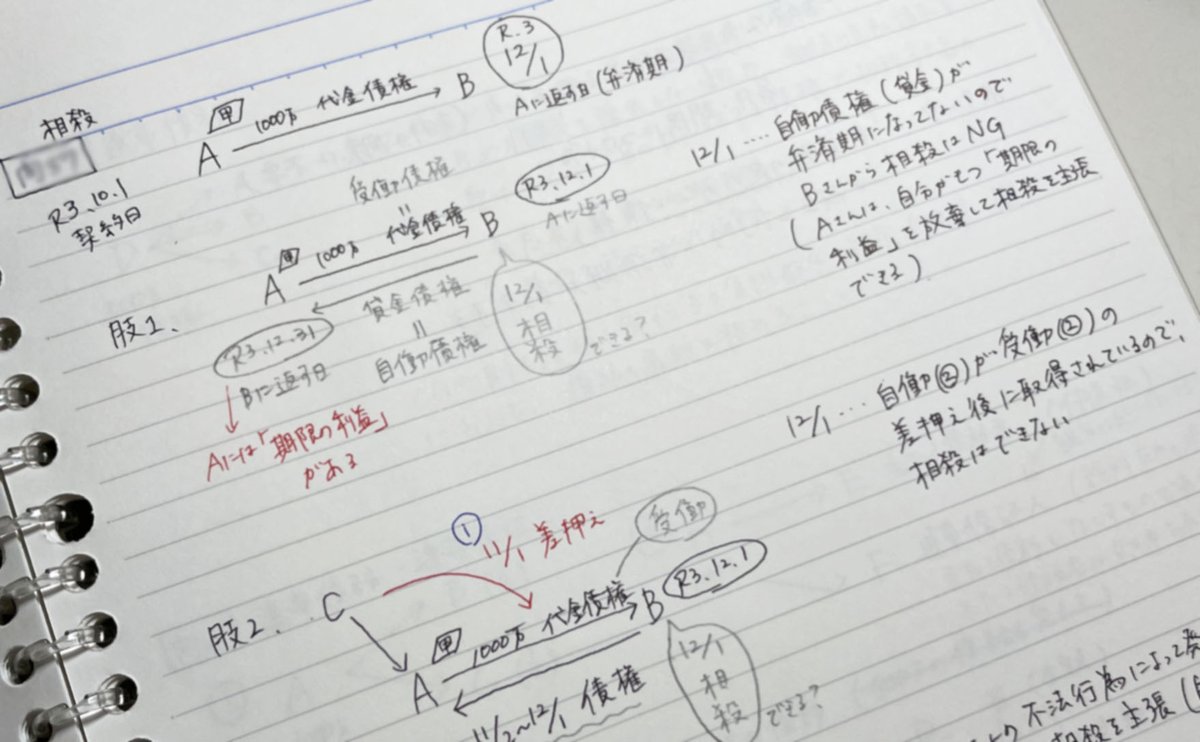 相殺
R3.10.1
契約日
甲
A 1000万 代金債権 B
R.3
12/1
Aに返す日(弁済期)
肢1.
受働債権
||
甲
A 1000万 代金債権 B
R3.12.1
Aに返す日
貸金債権
||
自働債権
R3.12.31
Bに返す日
Aには「期限の利益」
がある
12/1
相
殺
できる?
12/1 ‥‥ 自働債権(貸金)が
弁済期になってないので
Bさんから相殺はNG
(Aさんは、自分がもつ「期限の
利益」を放棄して相殺を主張
できる)
肢2.
C
① 11/1 差押え
受働
甲
A 1000万 代金債権 B
R3.12.1
11/2〜12/1 債権
12/1
相
殺
できる?
12/1 ‥‥ 自働(②)が受働(②)の
差押え後に取得されているので、
相殺はできない
不法行為によって
相殺を主張